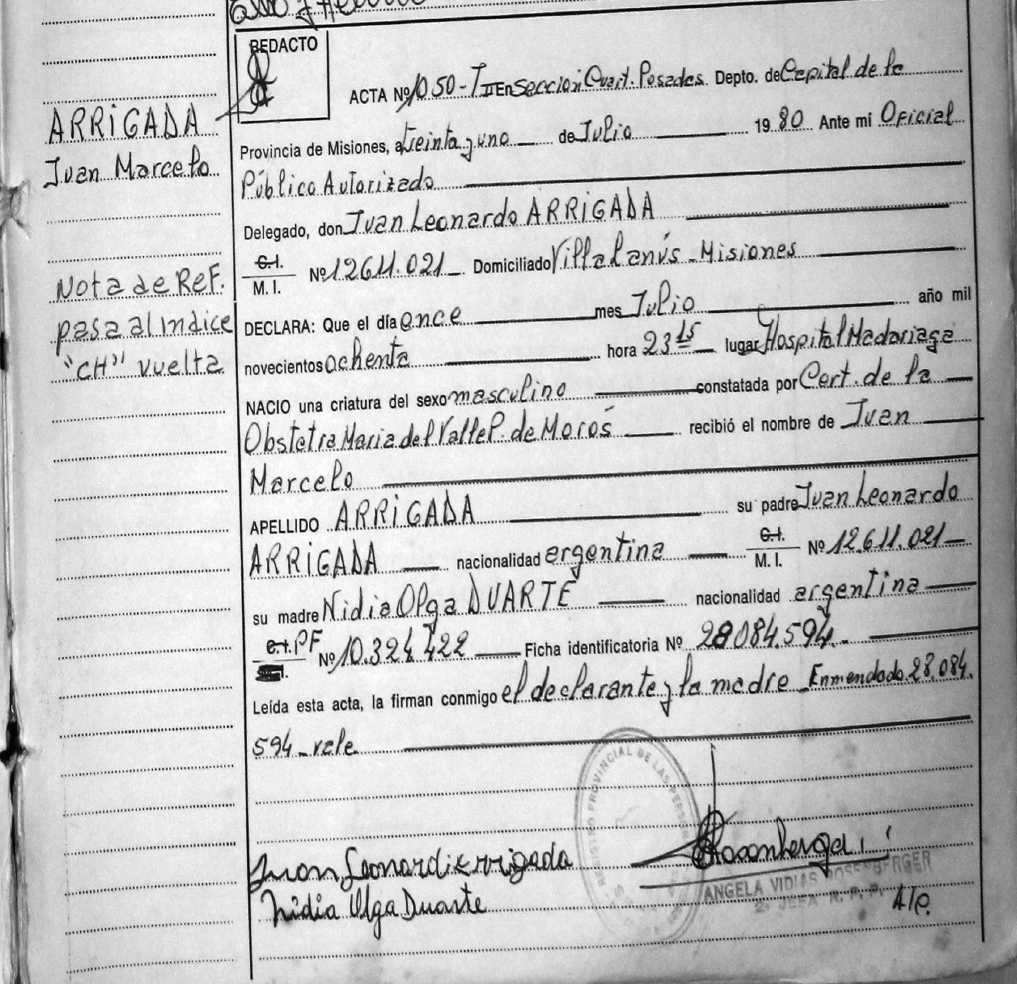 REDACTO
ARRIGADA
Juan Marcelo
Nota de Ref.
pasa al indice
"CH" vuelta
ACTA Nº 1050-T II En Sección Cuart. Posadas. Depto. de Capital de la
Provincia de Misiones, a treinta y uno de Julio 1980 Ante mi Oficial
Público Autorizado
Delegado, don Juan Leonardo ARRIGADA
C.I. M. I. Nº 12611.021 Domiciliado Villa Lanús - Misiones
DECLARA: Que el día once mes Julio año mil
novecientos ochenta hora 23 15 lugar Hospital Madariaga
NACIO una criatura del sexo masculino constatada por Cert. de la
Obstetra Maria del Valle P. de Morós recibió el nombre de Juan
Marcelo
APELLIDO ARRIGADA su padre Juan Leonardo
ARRIGADA nacionalidad argentina C.I. M. I. Nº 12.611.021
su madre Nidia Olga DUARTE nacionalidad argentina
C.I. PF Nº 10.324.422 Ficha identificatoria Nº 28084.594.
Leída esta acta, la firman conmigo el declarante y la madre - Enmendado 28.084.
594 - vale
REGISTRO PROVINCIAL DE LAS PERSONAS
Juan Leonard Arrigada
Nidia Olga Duarte
ANGELA VIDIAS ROSENBERGER
2ª JEFA R. P. P.
A/C.